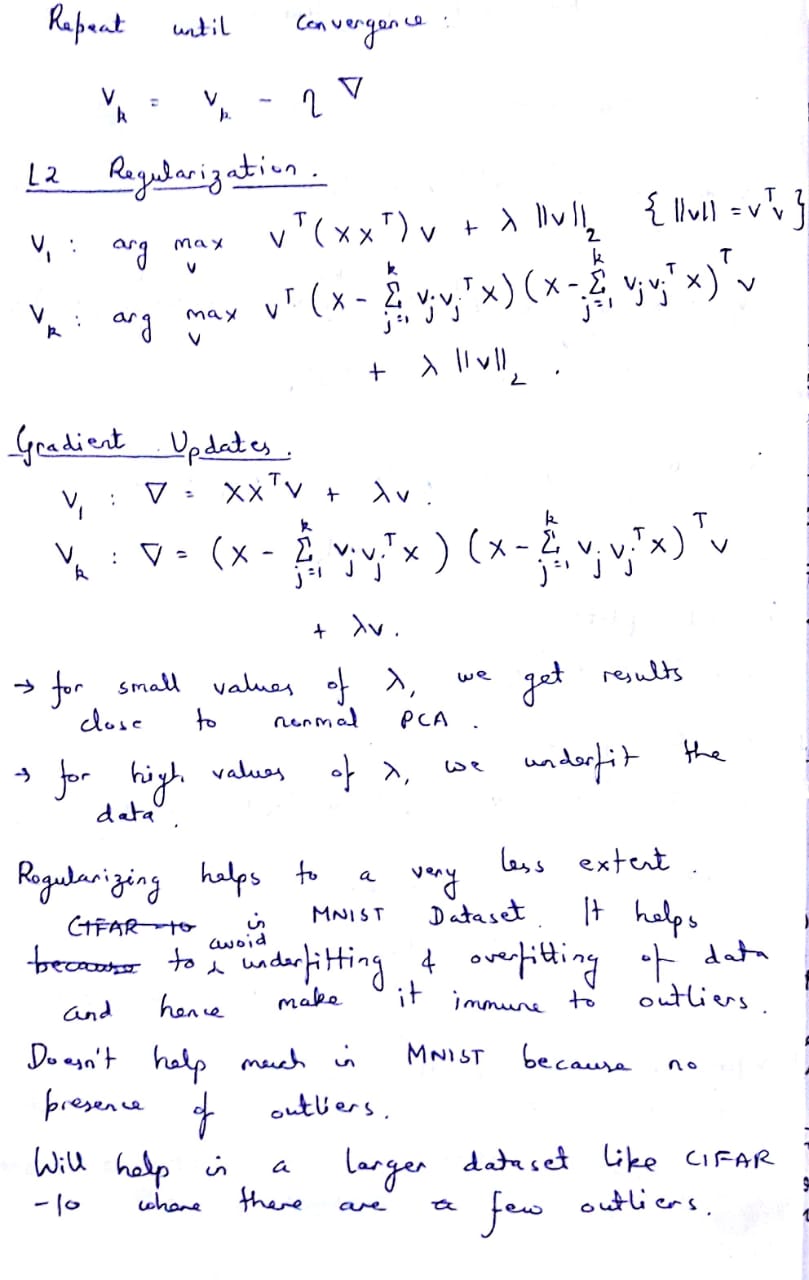 Repeat until Convergence :
V_k = V_k - η ∇
L2 Regularization.
V_1 : arg max_v v^T (XX^T) v + λ ||v||_2 { ||v|| = v^T v }
V_k : arg max_v v^T (X - Σ_{j=1}^{k} v_j v_j^T X) (X - Σ_{j=1}^{k} v_j v_j^T X)^T v
+ λ ||v||_2 .
Gradient Updates.
V_1 : ∇ = XX^T v + λv .
V_k : ∇ = (X - Σ_{j=1}^{k} v_j v_j^T X) (X - Σ_{j=1}^{k} v_j v_j^T X)^T v
+ λv .
→ for small values of λ, we get results
close to normal PCA .
→ for high values of λ, we underfit the
data .
Regularizing helps to a very less extent .
~~CIFAR-10~~ in MNIST Dataset. It helps
~~because~~ to avoid underfitting & overfitting of data
and hence make it immune to outliers.
Doesn't help much in MNIST because no
presence of outliers.
Will help in a larger dataset like CIFAR
-10 where there are a few outliers.